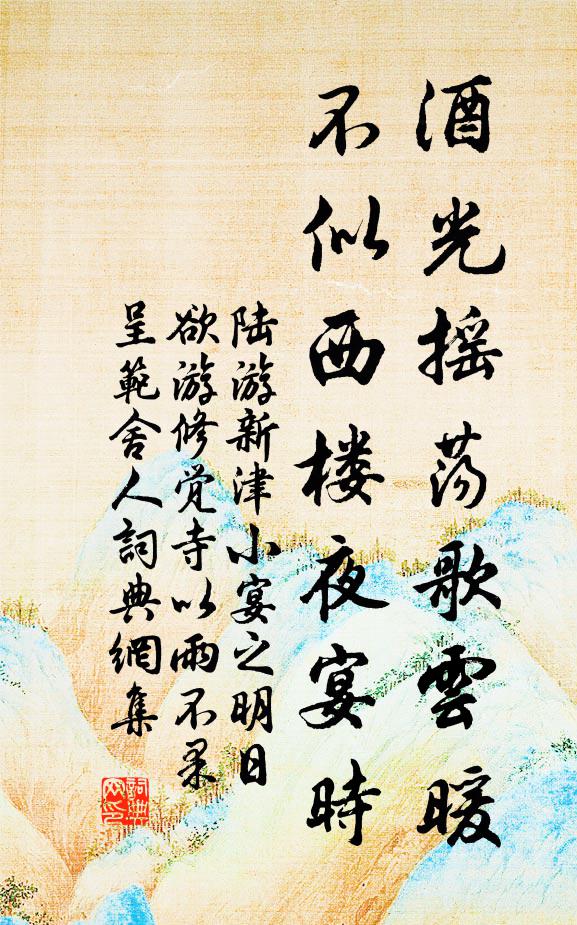 酒光摇荡歌雲暖
不似西楼夜宴時
陆游新津小宴之明日
欲游修觉寺以雨不果
呈範舍人詞典網集
詞典網印